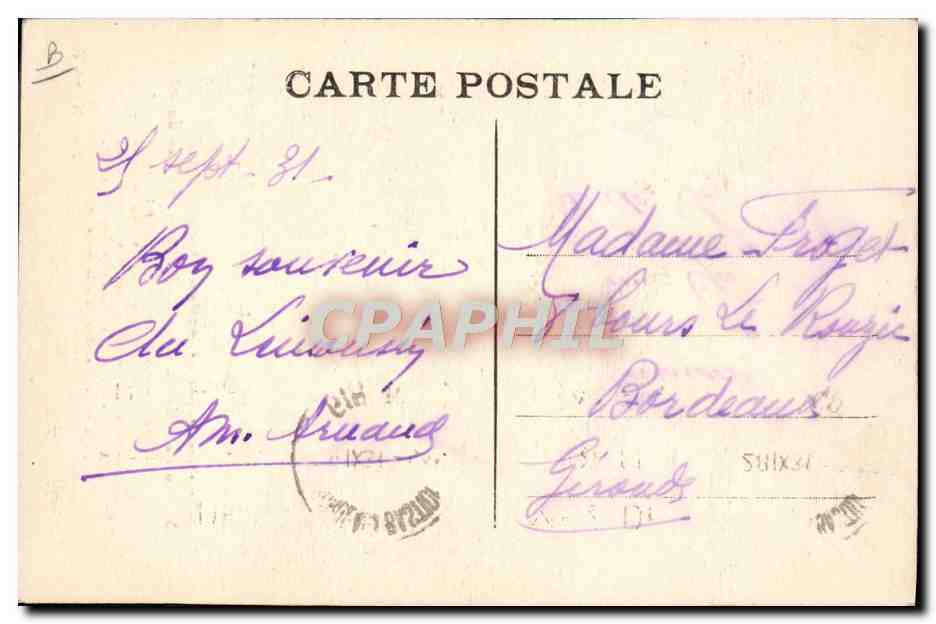 B
CARTE POSTALE
25 sept. 31.
Bon souvenir
du Limousin
Am. Arnaud
Madame Froget
Cours Le Rouzic
Bordeaux
Gironde
CPAPHIL